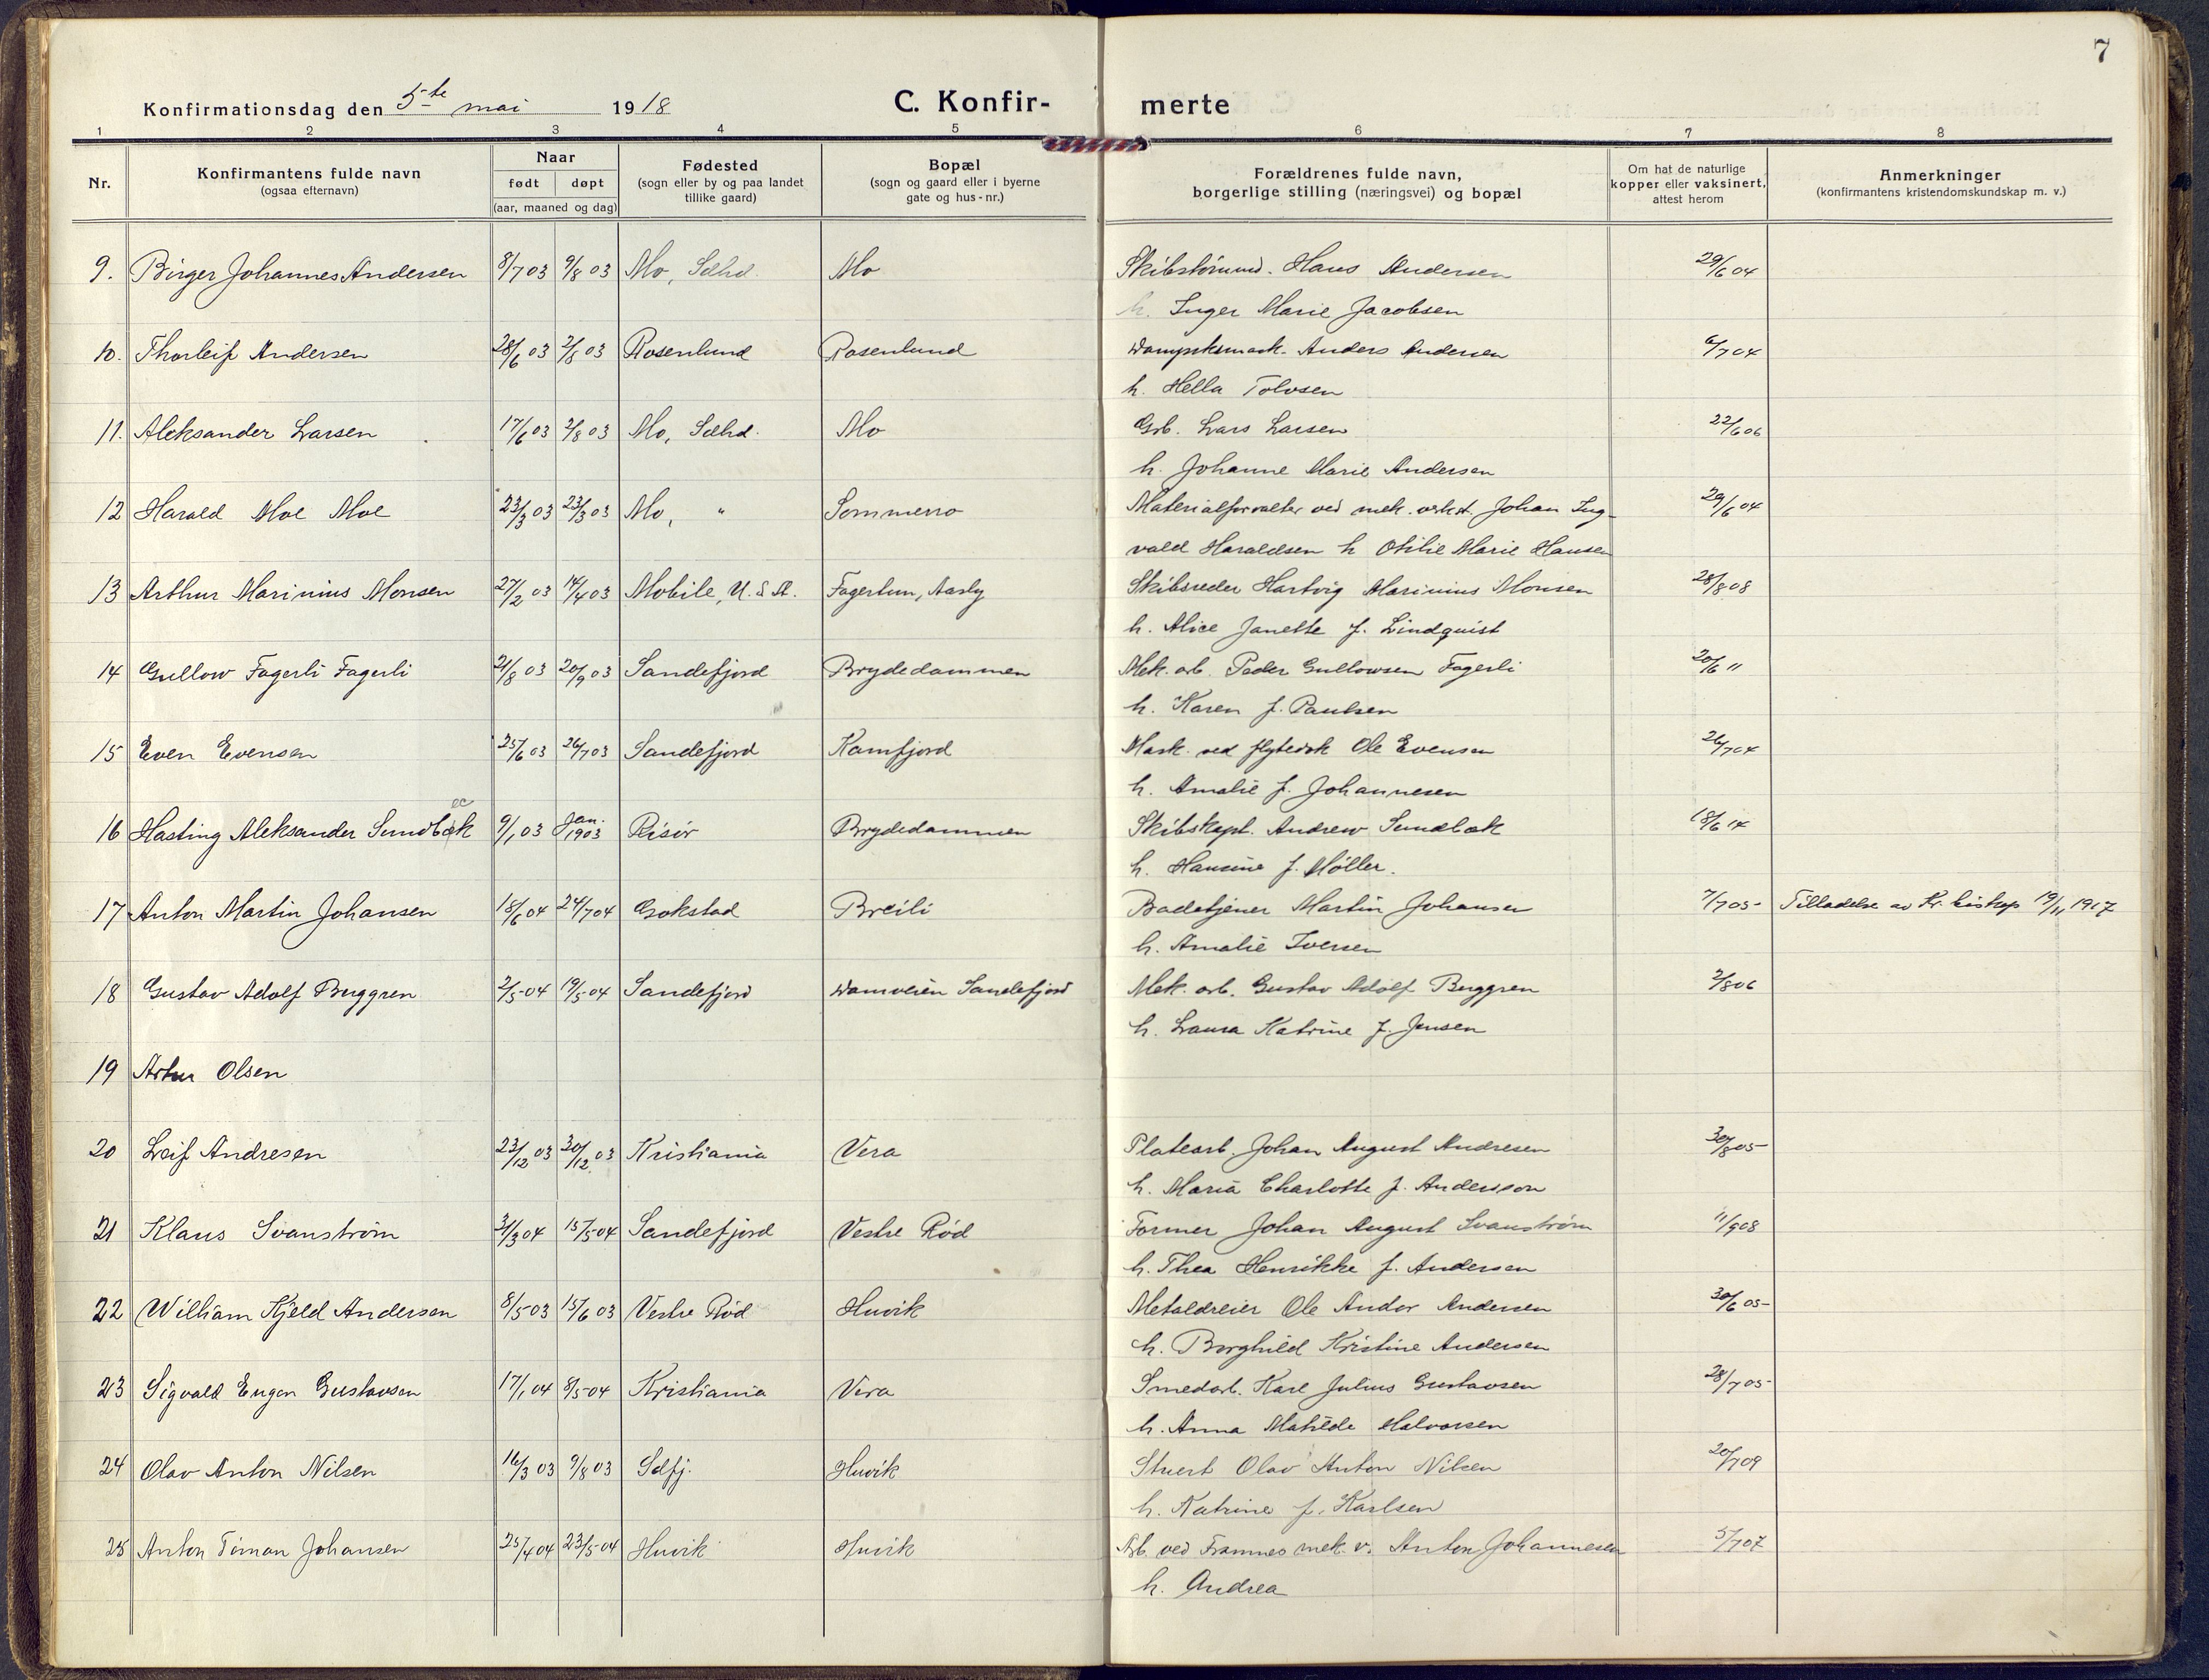 7
Konfirmationsdag den 5-te mai 1918 C. Konfir- merte
1 2 3 4 5 6 7 8
Nr.
Konfirmantens fulde navn
(ogsaa efternavn)
Naar
født døpt
(aar, maaned og dag)
Fødested
(sogn eller by og paa landet
tillike gaard)
Bopæl
(sogn og gaard eller i byerne
gate og hus-nr.)
Forældrenes fulde navn,
borgerlige stilling (næringsvei) og bopæl
Om hat de naturlige
kopper eller vaksinert,
attest herom
Anmerkninger
(konfirmantens kristendomskundskap m. v.)
9. Birger Johannes Andersen 8/7 03 9/8 03 Mo, Mo Hans Andersen 29/6 04
h. Inger Marie Jacobsen
10. Thorleif Andersen 28/6 03 2/8 03 Rosenlund Rosenlund Anders Andersen 6/7 04
h. Hella Tolvsen
11. Aleksander Larsen 17/6 03 2/8 03 Mo, Mo Grb. Lars Larsen 22/6 06
h. Johanne Marie Andersen
12 Harald Moe Moe 23/3 03 23/3 03 Mo, " Sommerro Materialforvalter ved mek. verkst. Johan Ing- 29/6 04
vald Haraldsen h Otilie Marie Hansen
13 Arthur Marinius Monsen 27/2 03 14/4 03 Mobile, U.S.A. Fagertun, Skibsreder Hartvig Marinius Monsen 28/8 08
h. Alice Janette f. Lindquist
14 Gullow Fagerli Fagerli 21/8 03 20/9 03 Sandefjord Brydedammen Mek. arb. Peder Gullowsen Fagerli 20/6 11
h. Karen f. Paulsen
15 Even Evensen 25/6 03 26/7 03 Sandefjord Kamfjord Mask. ved flytedok Ole Evensen 26/7 04
h. Amalie f. Johannesen
ec
16 Hasting Aleksander Sundbæk 9/1 03 Jan. 1903 Risør Brydedammen Skibskapt. Andrew Sundbæk 18/6 14
h. Hansine f. Møller.
17 Anton Martin Johansen 18/6 04 24/7 04 Gokstad Breili Badetjener Martin Johansen 7/7 05- Tilladelse av Kr. biskop 19/11 1917
h. Amalie Iversen
18 Gustav Adolf Berggren 2/5-04 19/5-04 Sandefjord Damveien Sandefjord Mek. arb. Gustav Adolf Berggren 2/8 06
h. Laura Katrine f. Jensen
19 Artur Olsen
20 Leif Andresen 23/12 03 30/12 03 Kristiania Vera Platearb. Johan August Andresen 30/8 05-
h. Maria Charlotte f. Andersson
21 Klaus Svanstrøm 31/3 04 15/5-04 Sandefjord Vestre Rød Former Johan August Svanstrøm 11/9 08
h. Thea Henrikke f. Andersen
22 William Kjeld Andersen 8/5-03 15/6 03 Vestre Rød Huvik Metaldreier Ole Andor Andersen 30/6 05-
h. Borghild Kristine Andersen
23 Sigvald Eugen Gustavsen 17/1 04 8/5-04 Kristiania Vera Smedarb. Karl Julius Gustavsen 28/7 05-
h. Anna Matilde Halvorsen
24 Olav Anton Nilsen 16/3 03 9/8 03 Sdfj. Huvik Stuert Olav Anton Nilsen 20/7 09
h. Katrine f. Karlsen
25 Anton Timan Johansen 25/4 04 23/5-04 Huvik Huvik Arb. ved Framnes mek. v. Anton Johannesen 5/7 07
h. Andrea